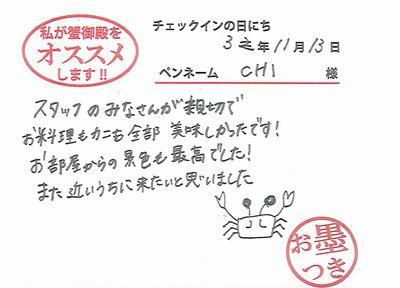 私が蟹御殿を
オススメ
します!!
チェックインの日にち
年11月13日
ペンネーム CHI 様
スタッフのみなさんが親切で
お料理もカニも全部 美味しかったです!
お部屋からの景色も最高でした!
また近いうちに来たいと思いました
お墨
つき